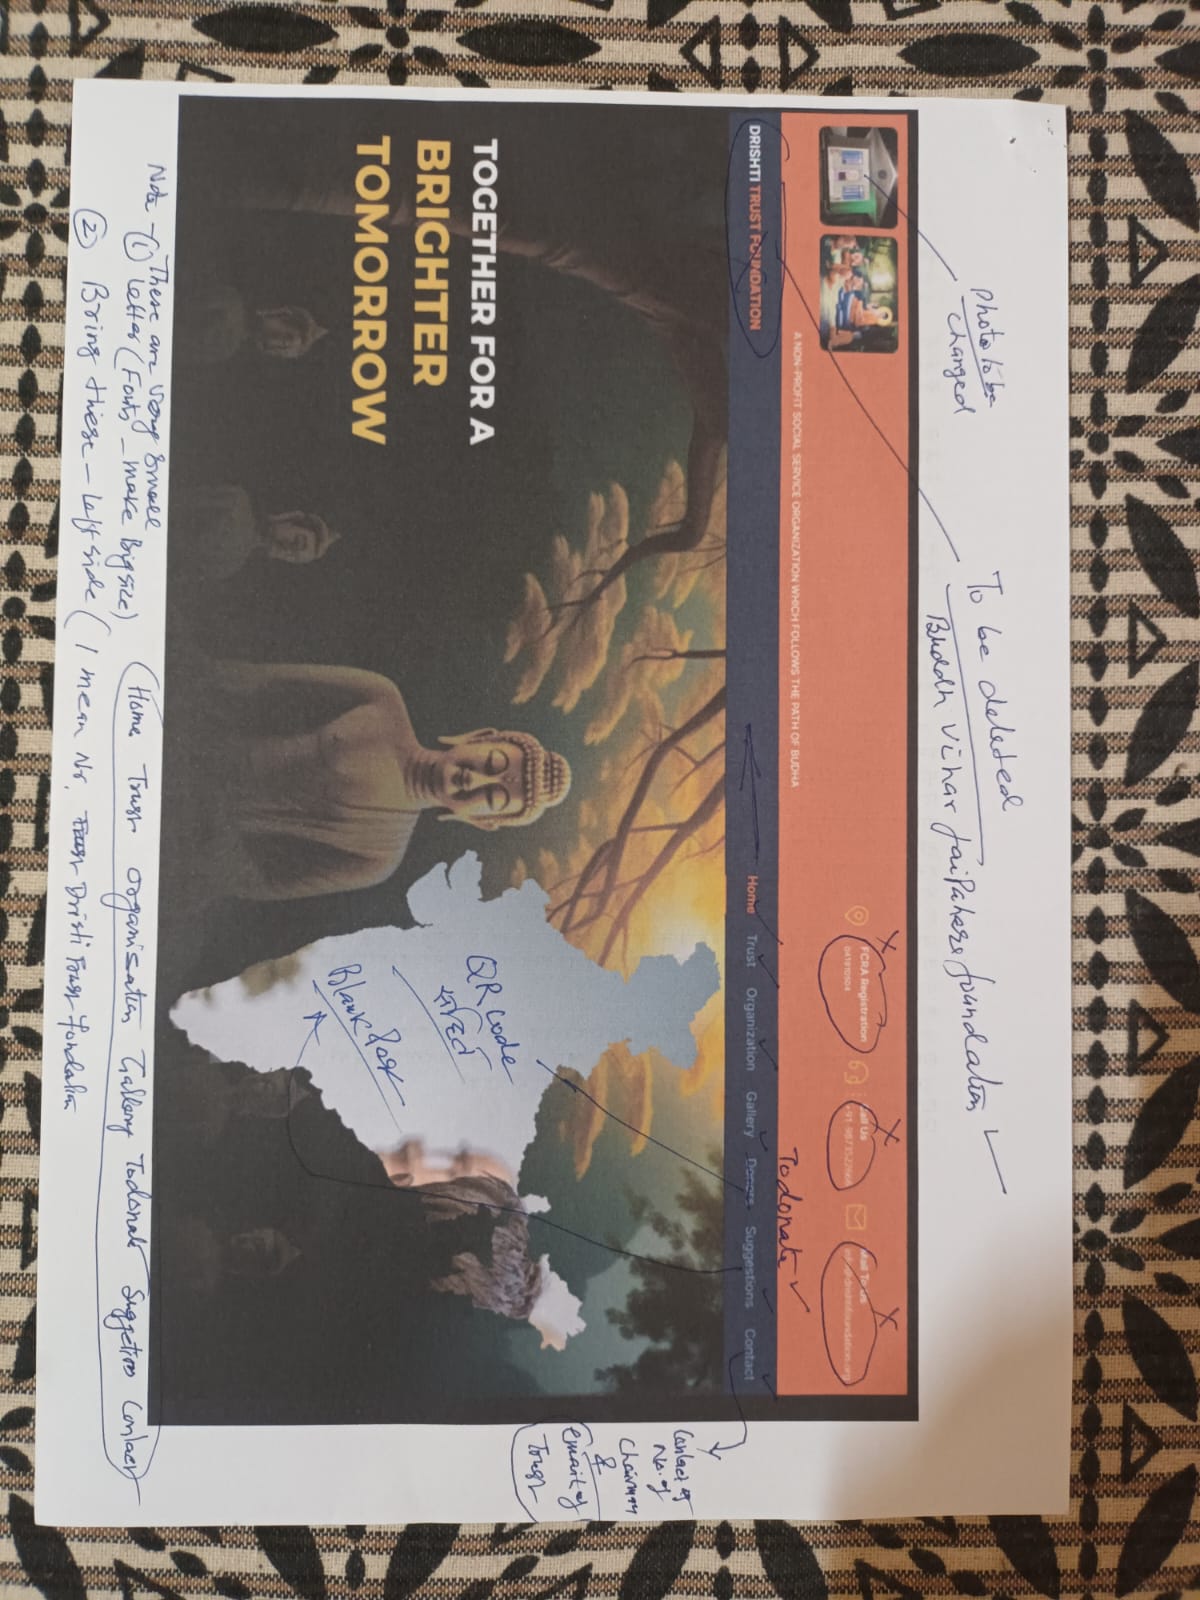 Photo to be
changed
To be deleted
Buddh Vihar JaiPahase foundation
FCRA Registration
041910504
Call Us
+91-9873522666
Mail To Us
info@drishtifoundation.org
A NON-PROFIT SOCIAL SERVICE ORGANIZATION WHICH FOLLOWS THE PATH OF BUDHA
To donate
DRISHTI TRUST FOUNDATION
Home Trust Organization Gallery Donors Suggestions Contact
Contact of
No. of
Chairman
&
email of
Trust
TOGETHER FOR A
BRIGHTER
TOMORROW
QR Code
सहित
Blank
Note - (1) These are very small
Letter (Fonts - make Big size)
Home Trust organisation Gallery To donate Suggetion Contact
(2) Bring these - Left side ( I mean Nr. Dristi Trust Fondation